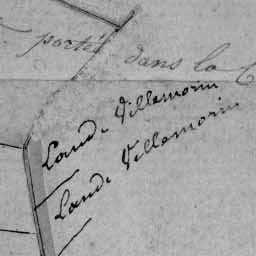 porté dans la C
Land. Villemorin
Land. Villemorin